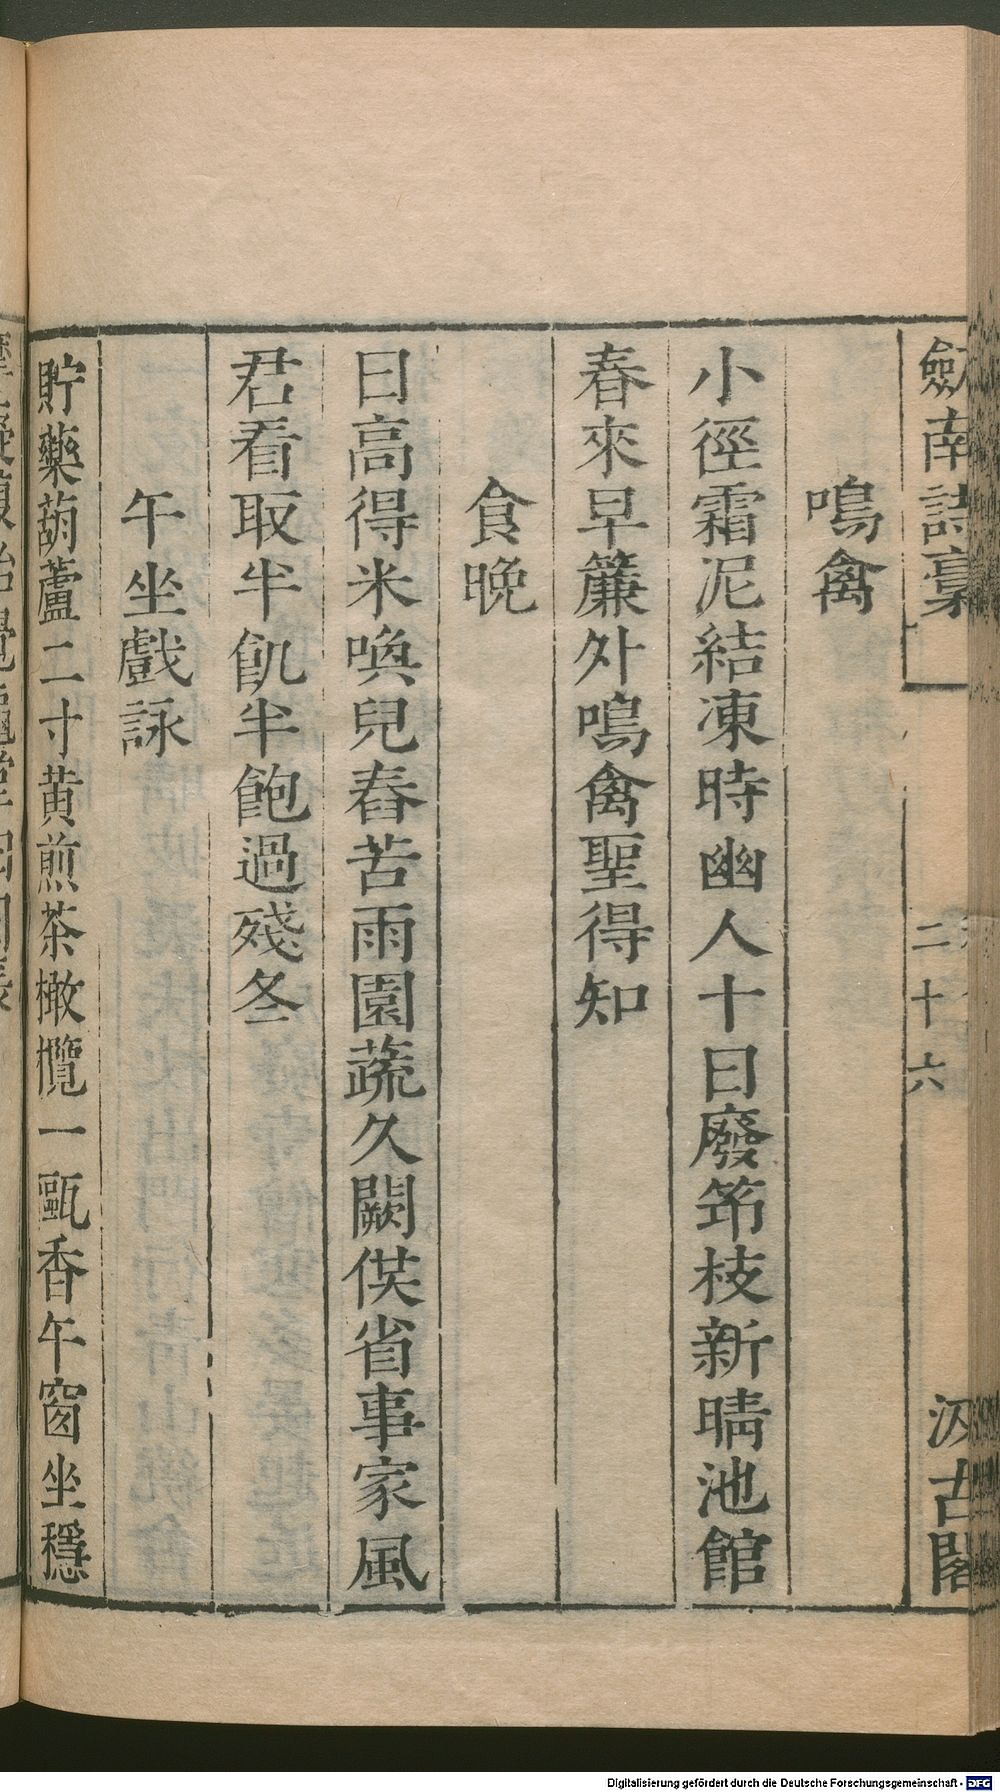 劒南詩藳
二十六
汲古閣
鳴禽
小徑霜泥結凍時幽人十日廢笻枝新晴池館
春來早簾外鳴禽聖得知
食晚
日高得米喚兒舂苦雨園蔬久闕供省事家風
君看取半飢半飽過殘冬
午坐戲詠
貯藥葫蘆二寸黃煎茶橄欖一甌香午窗坐穩
Digitalisierung gefördert durch die Deutsche Forschungsgemeinschaft - DFG